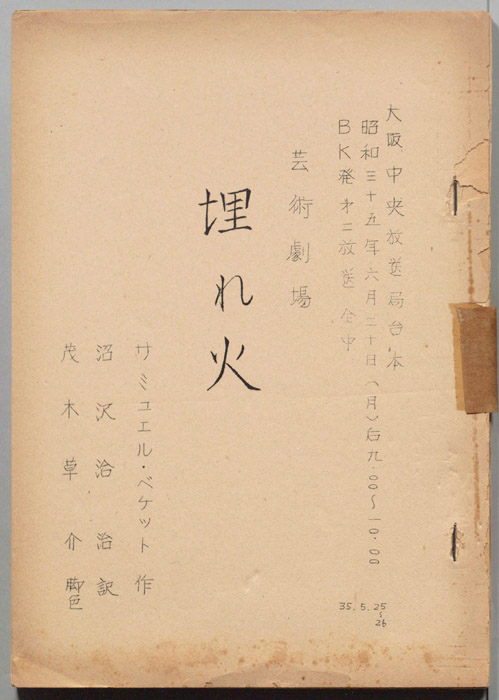 大阪中央放送局台本
昭和三十五年六月二十日(月)后九.00~一〇.00
BK発才二放送全中
芸術劇場
埋れ火
サミュエル・ベケット作
沼沢洽治訳
茂木草介脚色
35.5.25
~26